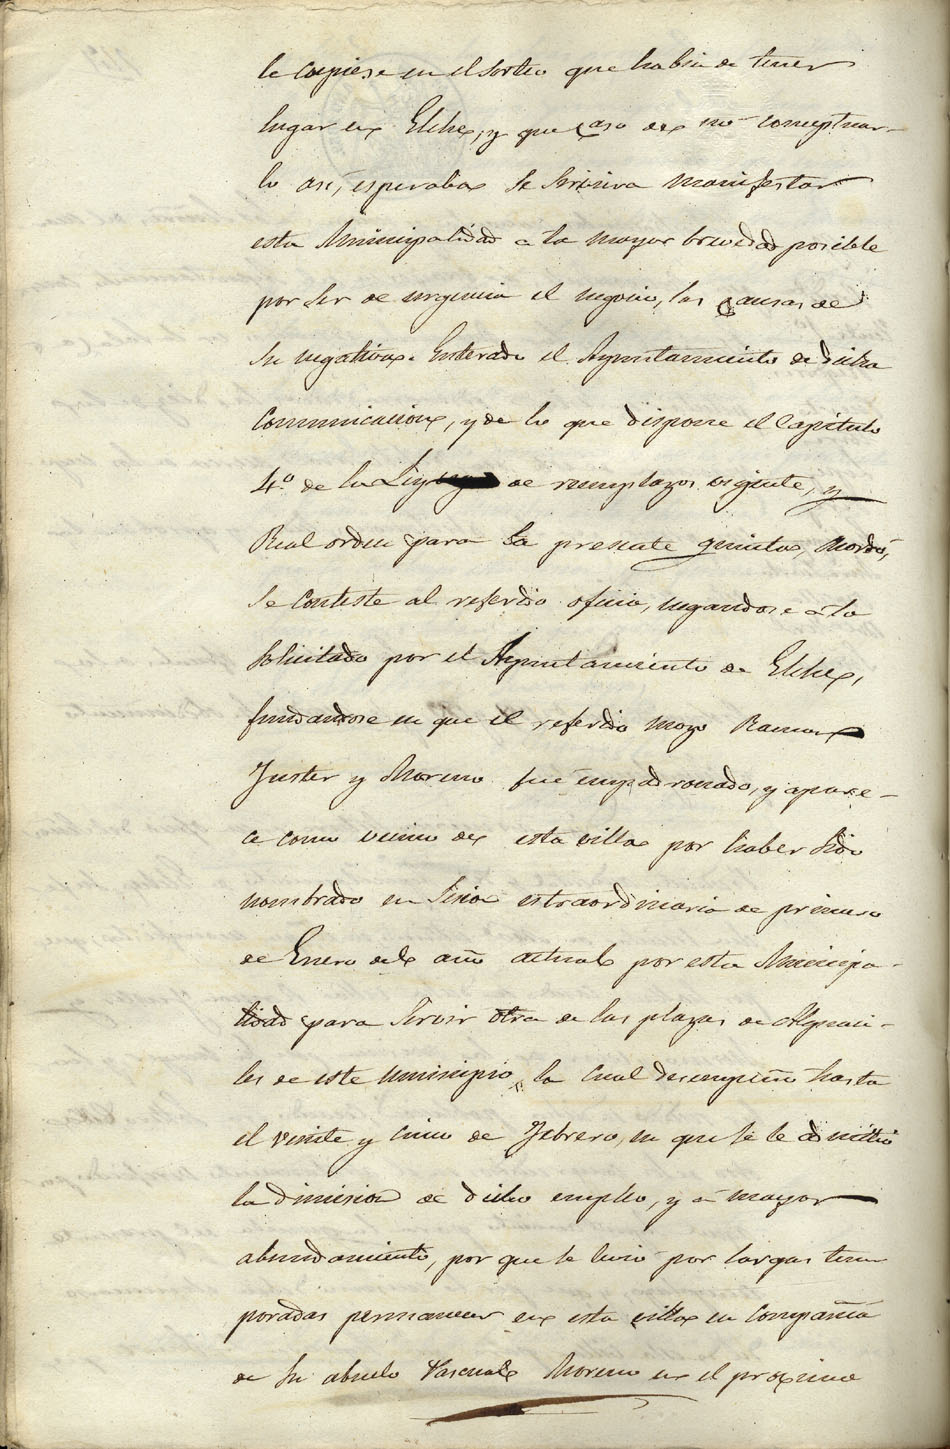 le cupiese en el sorteo que habia de tener
lugar en Elche, y que caso de no conceptuar-
lo asi, esperaba se sirviera manifestar
esta Municipalidad a la mayor brevedad posible
por ser de urgencia el negocio, las causas de
su negativa. Enterado el Ayuntamiento de dicha
comunicacion, y de lo que dispone el Capitulo
4º de la Ley de remplazos vigente, y
Real orden para la presente quinta, Acordó,
se conteste al referido oficio, negandose a lo
solicitado por el Ayuntamiento de Elche,
fundandose en que el referido mozo Ramon
Juster y Moreno fué empadronado, y apare-
ce como vecino de esta villa por haber sido
nombrado en sesion estraordinaria de primero
de Enero del año actual por esta Municipa-
lidad para servir otra de las plazas de Alguaci-
les de este municipio, la cual desempeñó hasta
el veinte y cinco de Febrero, en que se le admitió
la dimision de dicho empleo, y á mayor
abundamiento, por que le vieron por largas tem
poradas permanecer en esta villa en compañia
de su abuelo Pascual Moreno en el proximo